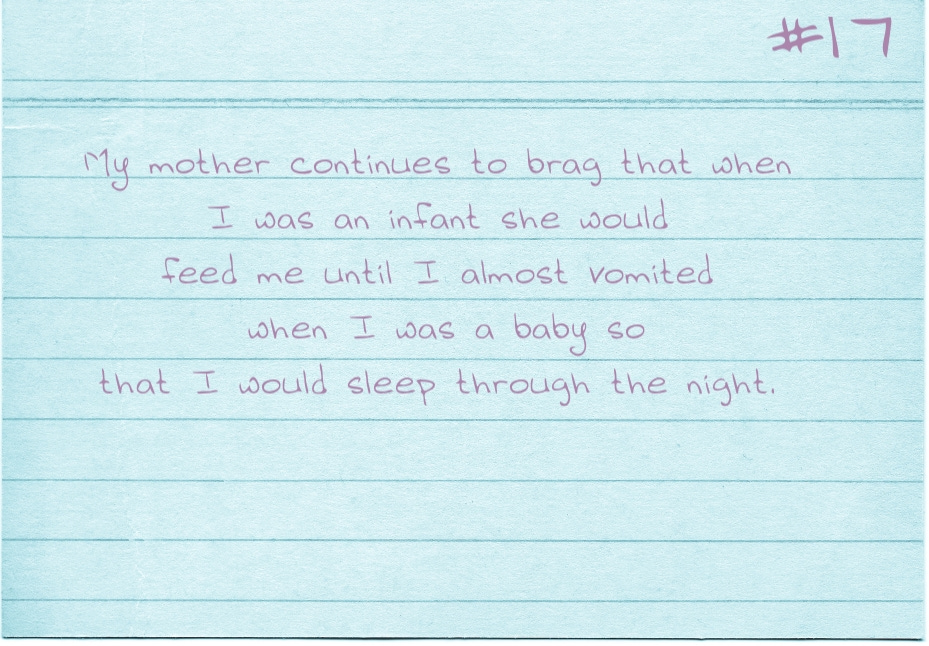 #17
My mother continues to brag that when
I was an infant she would
feed me until I almost vomited
when I was a baby so
that I would sleep through the night.